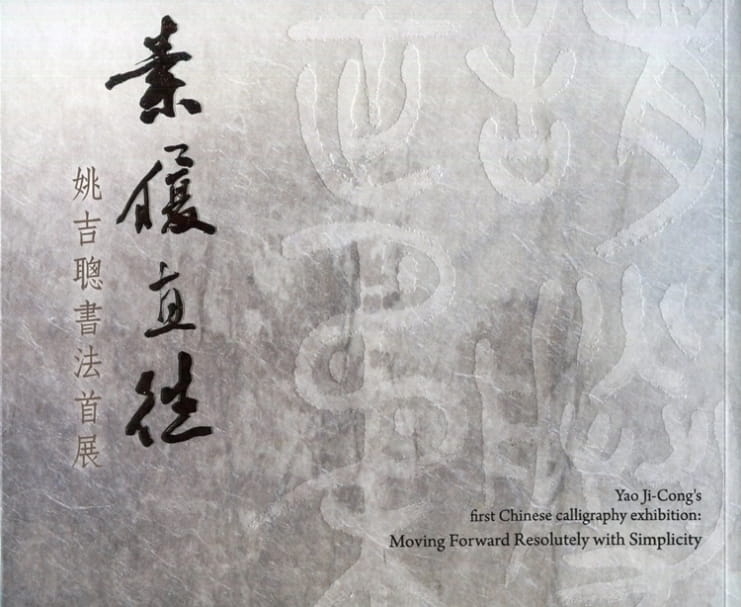 素履直往
姚吉聰書法首展
Yao Ji-Cong's
first Chinese calligraphy exhibition:
Moving Forward Resolutely with Simplicity